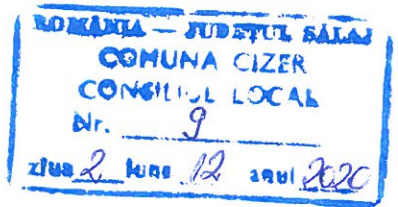 ROMÂNIA — JUDEȚUL SĂLAJ
COMUNA CIZER
CONSILIUL LOCAL
Nr. 9
ziua 2 luna 12 anul 2020